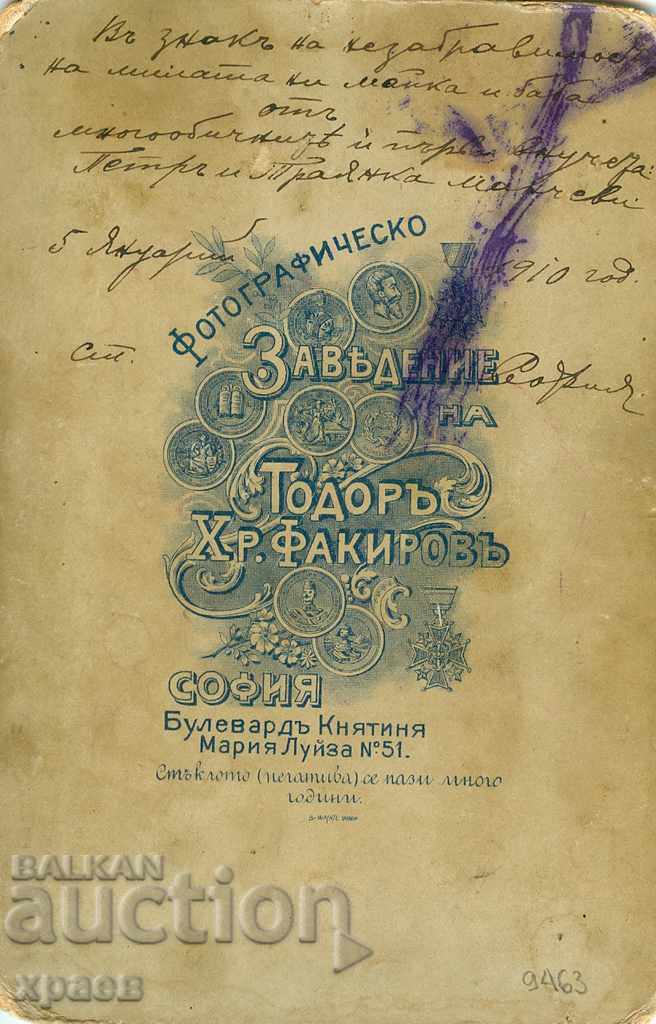 Въ знакъ на незабравимость
на милата ни майка и баба
отъ
многообичнизѣ ѝ първи внучета:
Петръ и Траянка Манчеви
5 Януарий 1910 год.
ст. София.
Фотографическо
Заведение
на
Тодоръ
Хр. Факировъ
София
Булевардъ Княтиня
Мария Луйза № 51.
Стъклото (негатива) се пази много
години.
BALKAN
auction
храев
9463